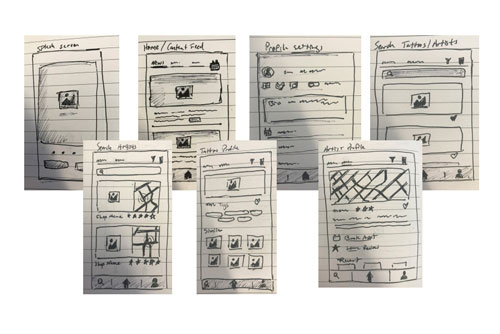 Splash screen
Home/Content Feed
Profile settings
Search Tattoos/Artists
Bio
Search Artists
Shop Name
Shop Name
Tattoo Profile
Tags
Similar
Artist Profile
Book Appt
Leave Review
Recent